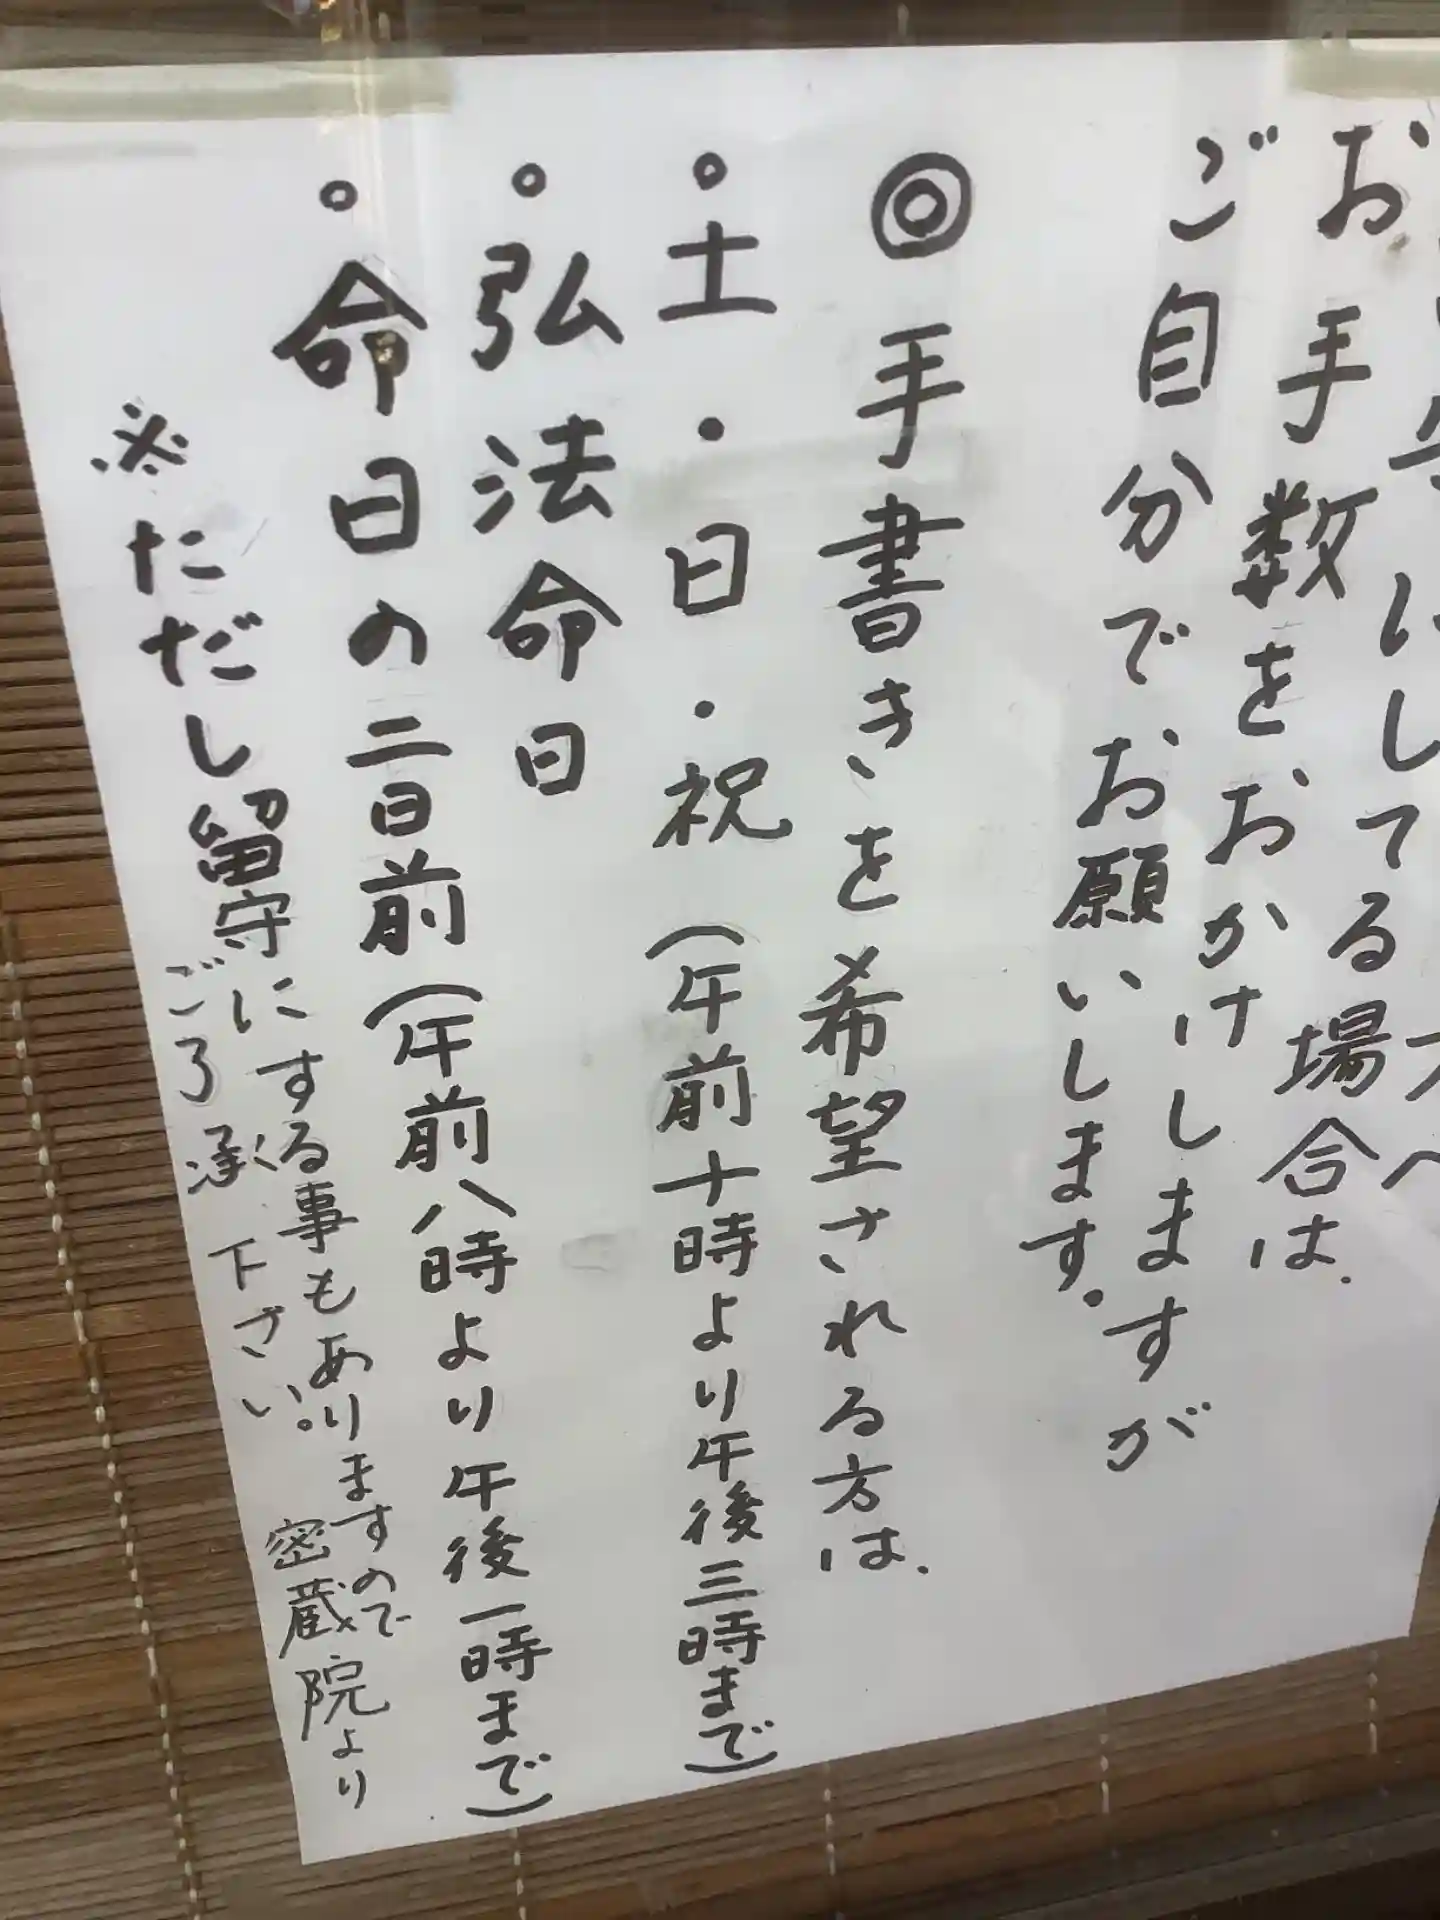 にしてる場合は、
お手数をおかけしますが
ご自分でお願いします。
◎手書きを希望される方は、
○土・日・祝(午前十時より午後三時まで)
○弘法命日
○命日の二日前(午前八時より午後一時まで)
※ただし留守にする事もありますので
ご了承く下さい。
密蔵院より